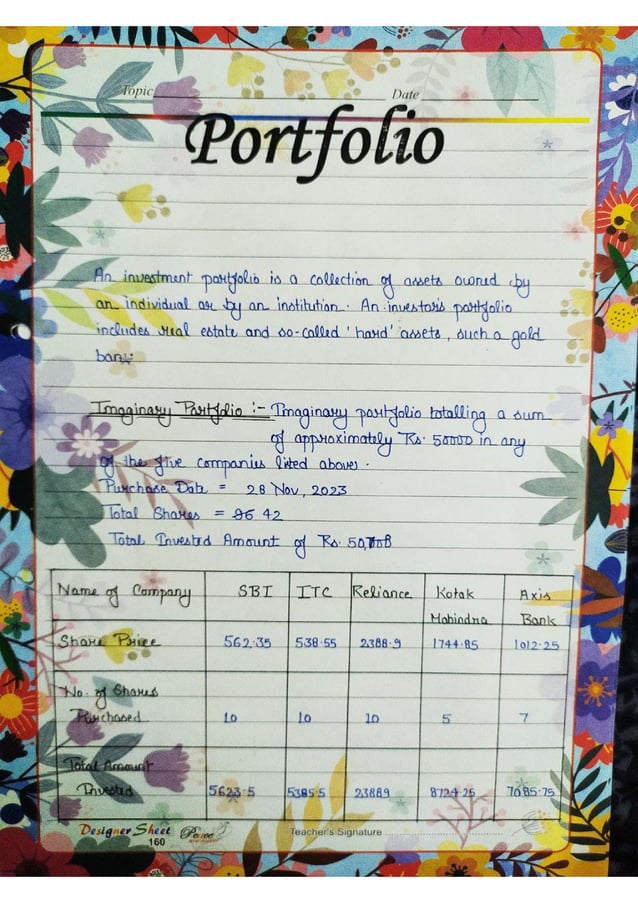 Topic Date
Portfolio
An investment portfolio is a collection of assets owned by
an individual or by an institution. An investor's portfolio
includes real estate and so-called 'hard' assets, such a gold
bar.
Imaginary Portfolio :- Imaginary portfolio totalling a sum
of approximately Rs. 50000 in any
of the five companies listed above.
Purchase Date = 28 Nov, 2023
Total Shares = 42
Total Invested Amount of Rs.
Name of Company SBI ITC Reliance Kotak Mahindra Axis Bank
Share Price 562.35 538.55 2388.9 1744.85 1012.25
No. of Shares Purchased 10 10 10 5 7
Total Amount Invested 5623.5 5385.5 23889 8724.25 7085.75
Designer Sheet Teacher's Signature
160